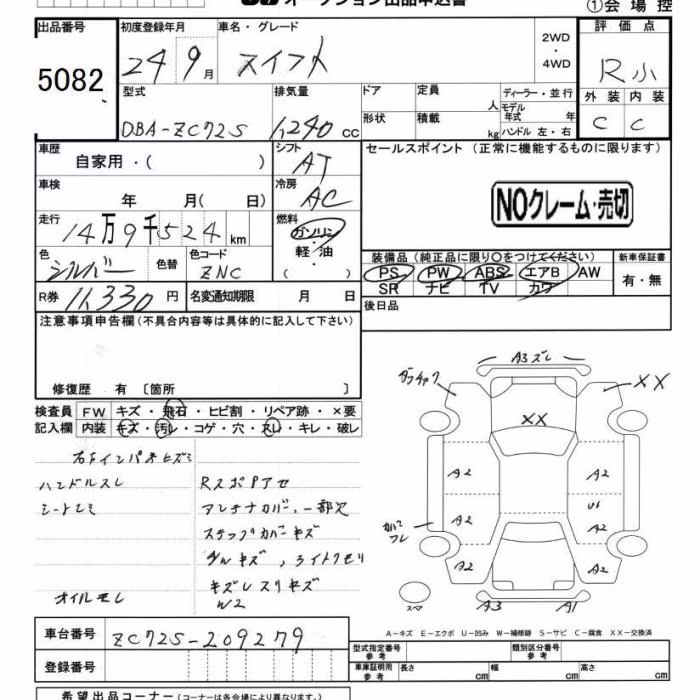 オークション出品申込書
①会場控
出品番号 5082
初度登録年月 24 9月
車名・グレード スイフト
2WD・4WD
評価点 R小
外装 C 内装 C
型式 DBA-ZC72S
排気量 1,240 cc
ドア 形状
定員 人 積載 kg
ディーラー・並行
モデル年式 年
ハンドル 左・右
車歴 自家用・( )
シフト AT
セールスポイント(正常に機能するものに限ります)
NOクレーム・売切
車検 年 月( 日)
冷房 AC
走行 14万9千524 km
燃料 ガソリン 軽・油 ( )
色 シルバー 色替 色コード ZNC
装備品(純正品に限り○をつけてください)
PS PW ABS エアB AW
SR ナビ TV カワ
新車保証書 有・無
R券 11,330円 名変通知期限 月 日
後日品
注意事項申告欄(不具合内容等は具体的に記入して下さい)
修復歴 有 〔箇所 〕
検査員記入欄
FW キズ・飛石・ヒビ割・リペア跡・×要
内装 キズ・汚レ・コゲ・穴・スレ・キレ・破レ
ハンドルスレ
アンテナカバー一部欠
ステップカバーキズ
オイルモレ
W2
A3ズレ
XX
XX
A2
A2
A2
A2
U1
A2
A2
A3
A1
スマ
A-キズ E-エクボ U-凹み W-補修跡 S-サビ C-腐食 XX-交換済
車台番号 ZC72S-209279
登録番号
型式指定番号 参考
類別区分番号 参考
車庫証明用 参考 長さ cm 幅 cm 高さ cm
希望出品コーナー(コーナーは各会場により異なります。)